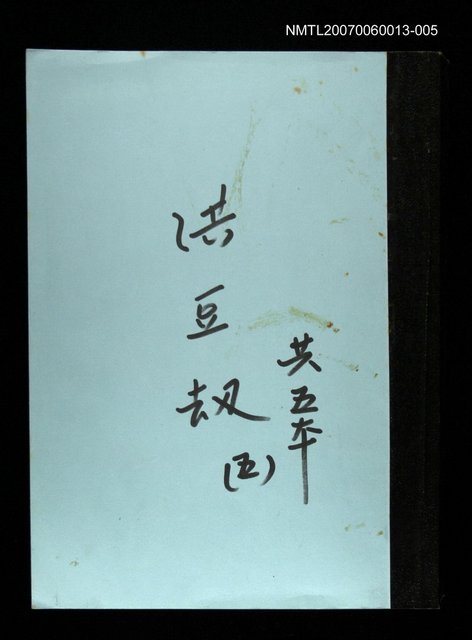 NMTL20070060013-005
洪豆刼
(五)
共五本